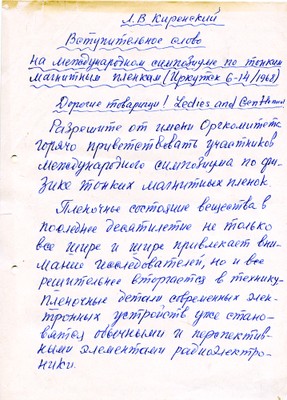 Л.В Киренский
Вступительное слово
на международном симпозиуме по тонким
магнитным пленкам (Иркутск 6-14/1968)
Дорогие товарищи! Ledies and Gentlmen
Разрешите от имени Оргкомитета
горячо приветствовать участников
международного симпозиума по фи-
зике тонких магнитных пленок.
Пленочное состояние вещества в
последнее десятилетие не только
все шире и шире привлекает вни-
мание исследователей, но и все
решительнее вторгается в технику.
Пленочные детали современных элек-
тронных устройств уже стано-
вятся обычными и перспектив-
ными элементами радиоэлектро-
ники.